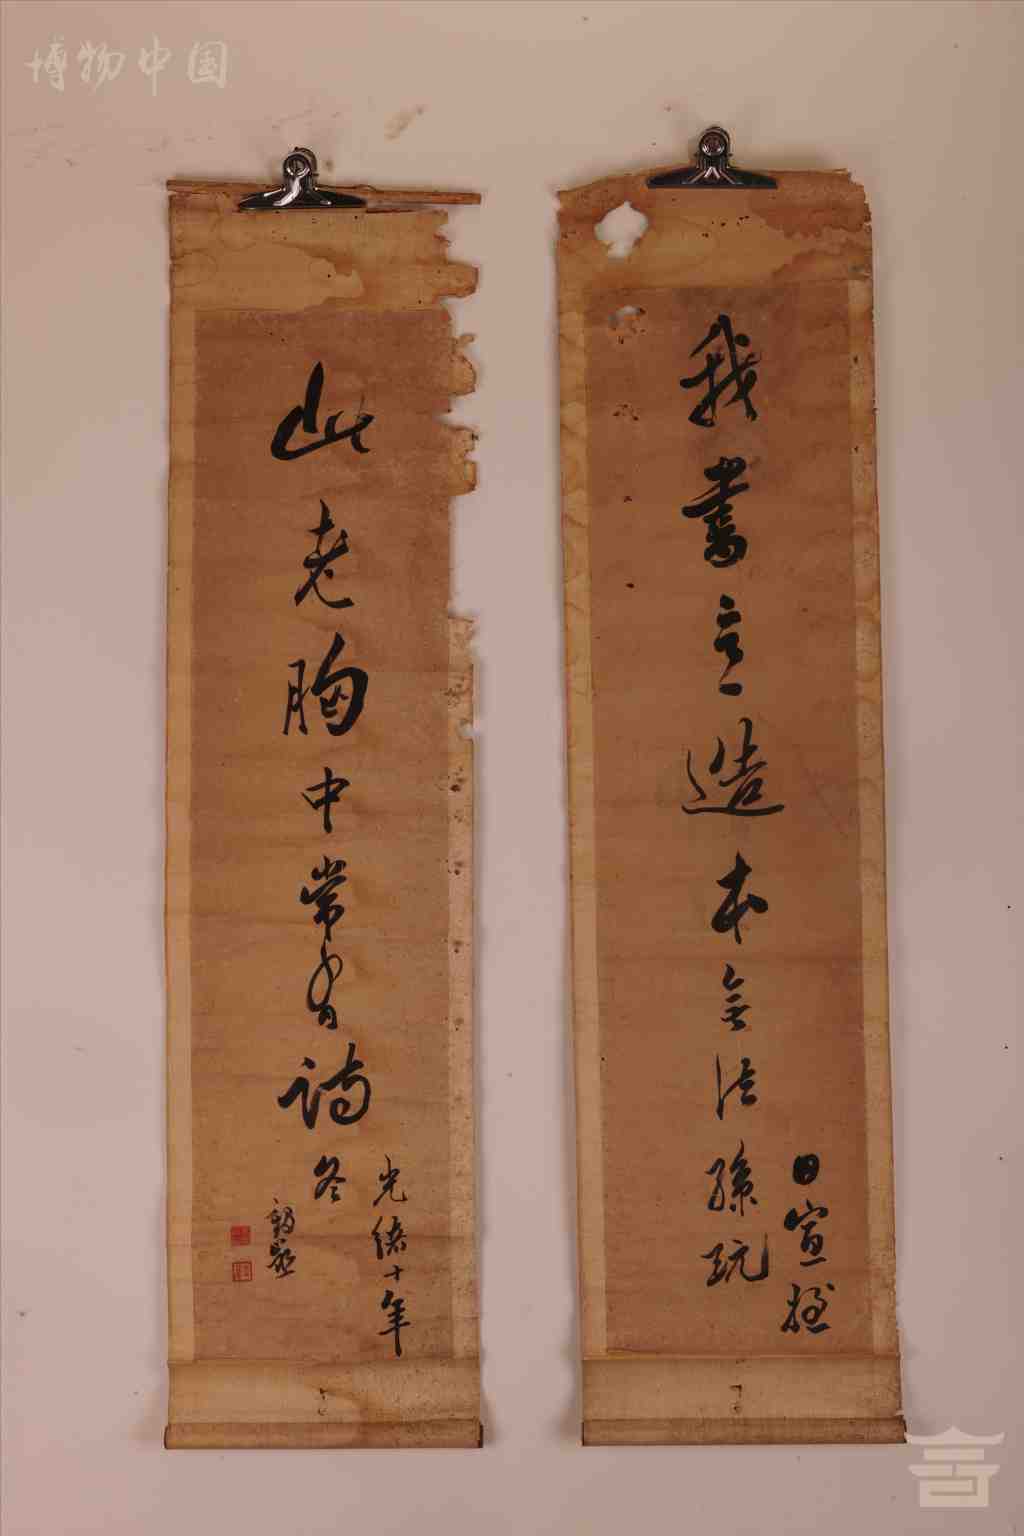 博物中国
我書意造本無法
日宣姪
孫玩
此老胸中常有詩
光緒十年
冬